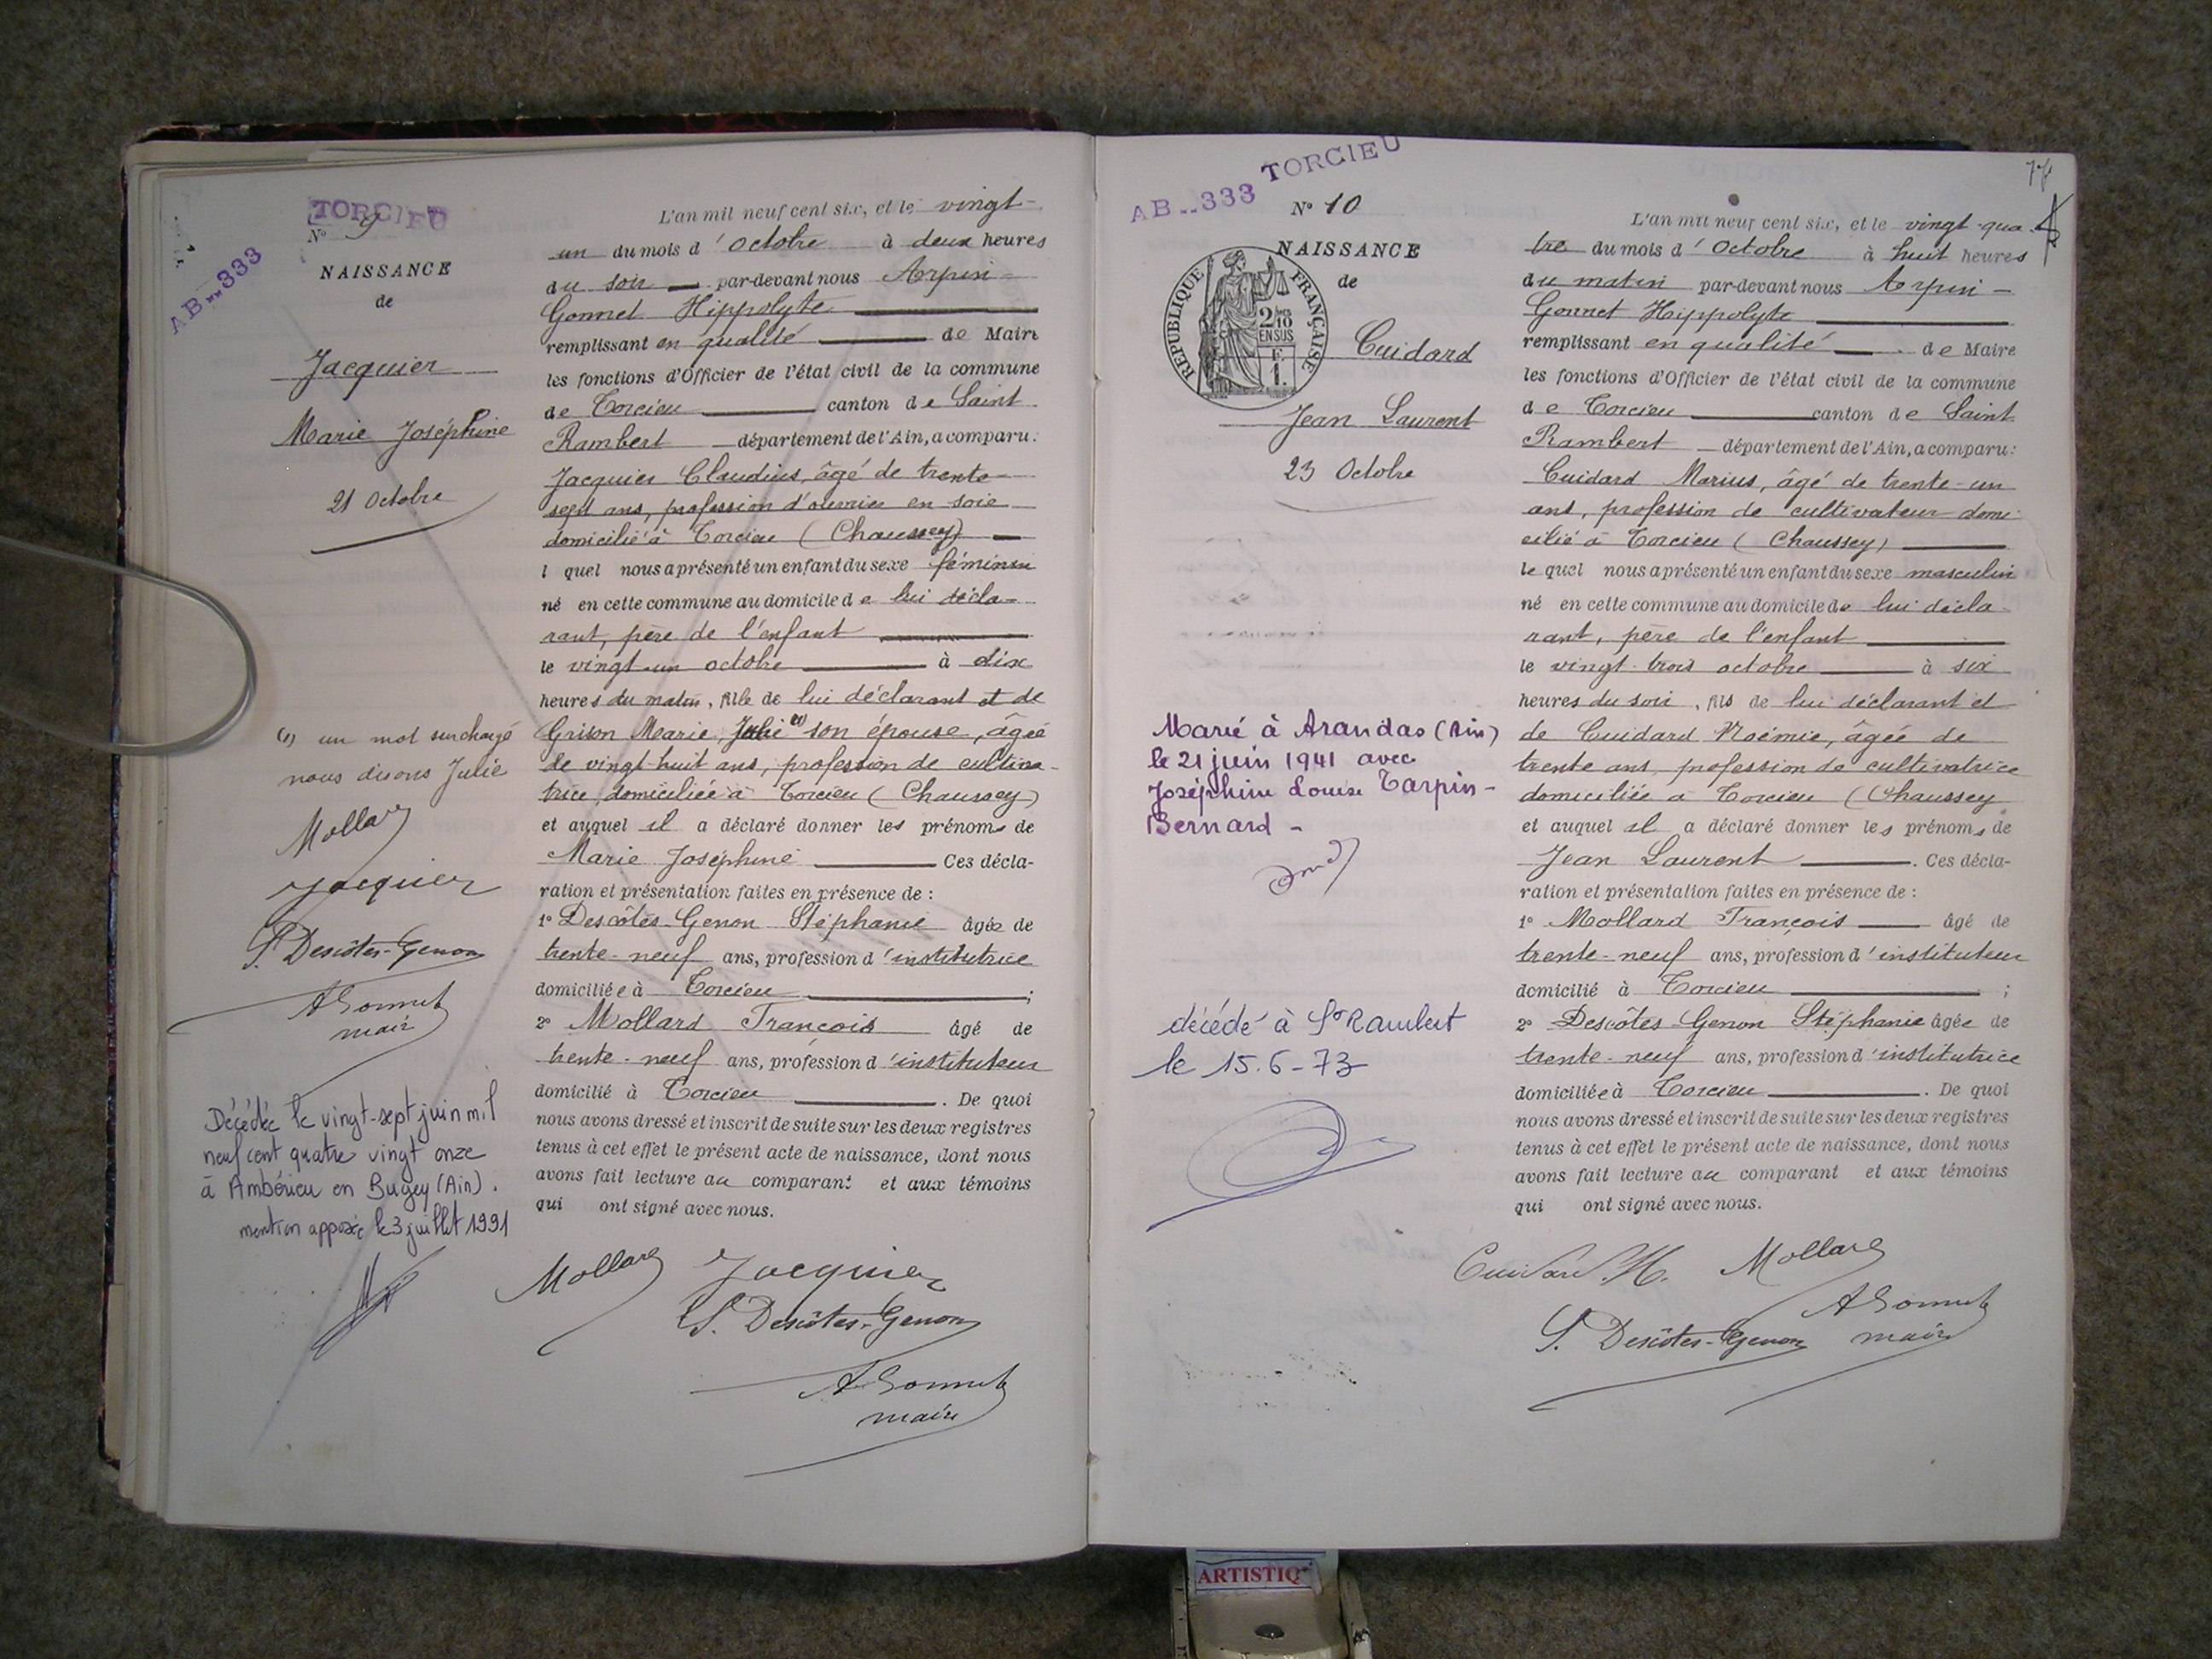 TORCIEU
AB--333
N° 9
NAISSANCE
de
Jacquier
Marie Joséphine
21 Octobre
(1) un mot surchargé
nous disons Julie
Mollard
Jacquier
S. Descôtes-Genon
A Gonnet
maire
Décédée le vingt-sept juin mil
neuf cent quatre vingt onze
à Ambérieu en Bugey (Ain).
mention apposée le 3 juillet 1991
L'an mil neuf cent six, et le vingt-
un du mois d'Octobre à deux heures
du soir par-devant nous Arpin-
Gonnet Hippolyte
remplissant en qualité de Maire
les fonctions d'Officier de l'état civil de la commune
de Torcieu canton de Saint
Rambert département de l'Ain, a comparu:
Jacquier Claudius, âgé de trente-
sept ans, profession d'ouvrier en soie
domicilié à Torcieu (Chaussey)
l quel nous a présenté un enfant du sexe féminin
né en cette commune au domicile de lui décla-
rant, père de l'enfant
le vingt-un octobre à dix
heures du matin, fille de lui déclarant et de
Grison Marie Julie (1) son épouse, âgée
de vingt-huit ans, profession de cultiva-
trice, domiciliée à Torcieu (Chaussey)
et auquel il a déclaré donner les prénoms de
Marie Joséphine Ces décla-
ration et présentation faites en présence de :
1° Descôtes-Genon Stéphanie âgée de
trente-neuf ans, profession d'institutrice
domiciliée à Torcieu ;
2° Mollard François âgé de
trente-neuf ans, profession d'instituteur
domicilié à Torcieu . De quoi
nous avons dressé et inscrit de suite sur les deux registres
tenus à cet effet le présent acte de naissance, dont nous
avons fait lecture au comparant et aux témoins
qui ont signé avec nous.
Mollard Jacquier
S. Descôtes-Genon
A Gonnet
maire
AB--333 TORCIEU
N° 10
NAISSANCE
de
RÉPUBLIQUE FRANÇAISE
2/10
EN SUS
F.
1.
Cuidard
Jean Laurent
23 Octobre
Marié à Arandas (Ain)
le 21 juin 1941 avec
Joséphine Louise Tarpin-
Bernard -
décédé à St Rambert
le 15.6-73
L'an mil neuf cent six, et le vingt-qua-
tre du mois d'Octobre à huit heures
du matin par-devant nous Arpin-
Gonnet Hippolyte
remplissant en qualité de Maire
les fonctions d'Officier de l'état civil de la commune
de Torcieu canton de Saint
Rambert département de l'Ain, a comparu:
Cuidard Marius, âgé de trente-un
ans, profession de cultivateur domi-
cilié à Torcieu (Chaussey)
le quel nous a présenté un enfant du sexe masculin
né en cette commune au domicile de lui décla-
rant, père de l'enfant
le vingt-trois octobre à six
heures du soir, fils de lui déclarant et
de Cuidard Noémie, âgée de
trente ans, profession de cultivatrice
domiciliée à Torcieu (Chaussey
et auquel il a déclaré donner les prénoms de
Jean Laurent . Ces décla-
ration et présentation faites en présence de :
1° Mollard François âgé de
trente-neuf ans, profession d'instituteur
domicilié à Torcieu ;
2° Descôtes Genon Stéphanie âgée de
trente-neuf ans, profession d'institutrice
domiciliée à Torcieu . De quoi
nous avons dressé et inscrit de suite sur les deux registres
tenus à cet effet le présent acte de naissance, dont nous
avons fait lecture au comparant et aux témoins
qui ont signé avec nous.
Cuidard M. Mollard
S. Descôtes-Genon A Gonnet
maire
ARTISTIQ